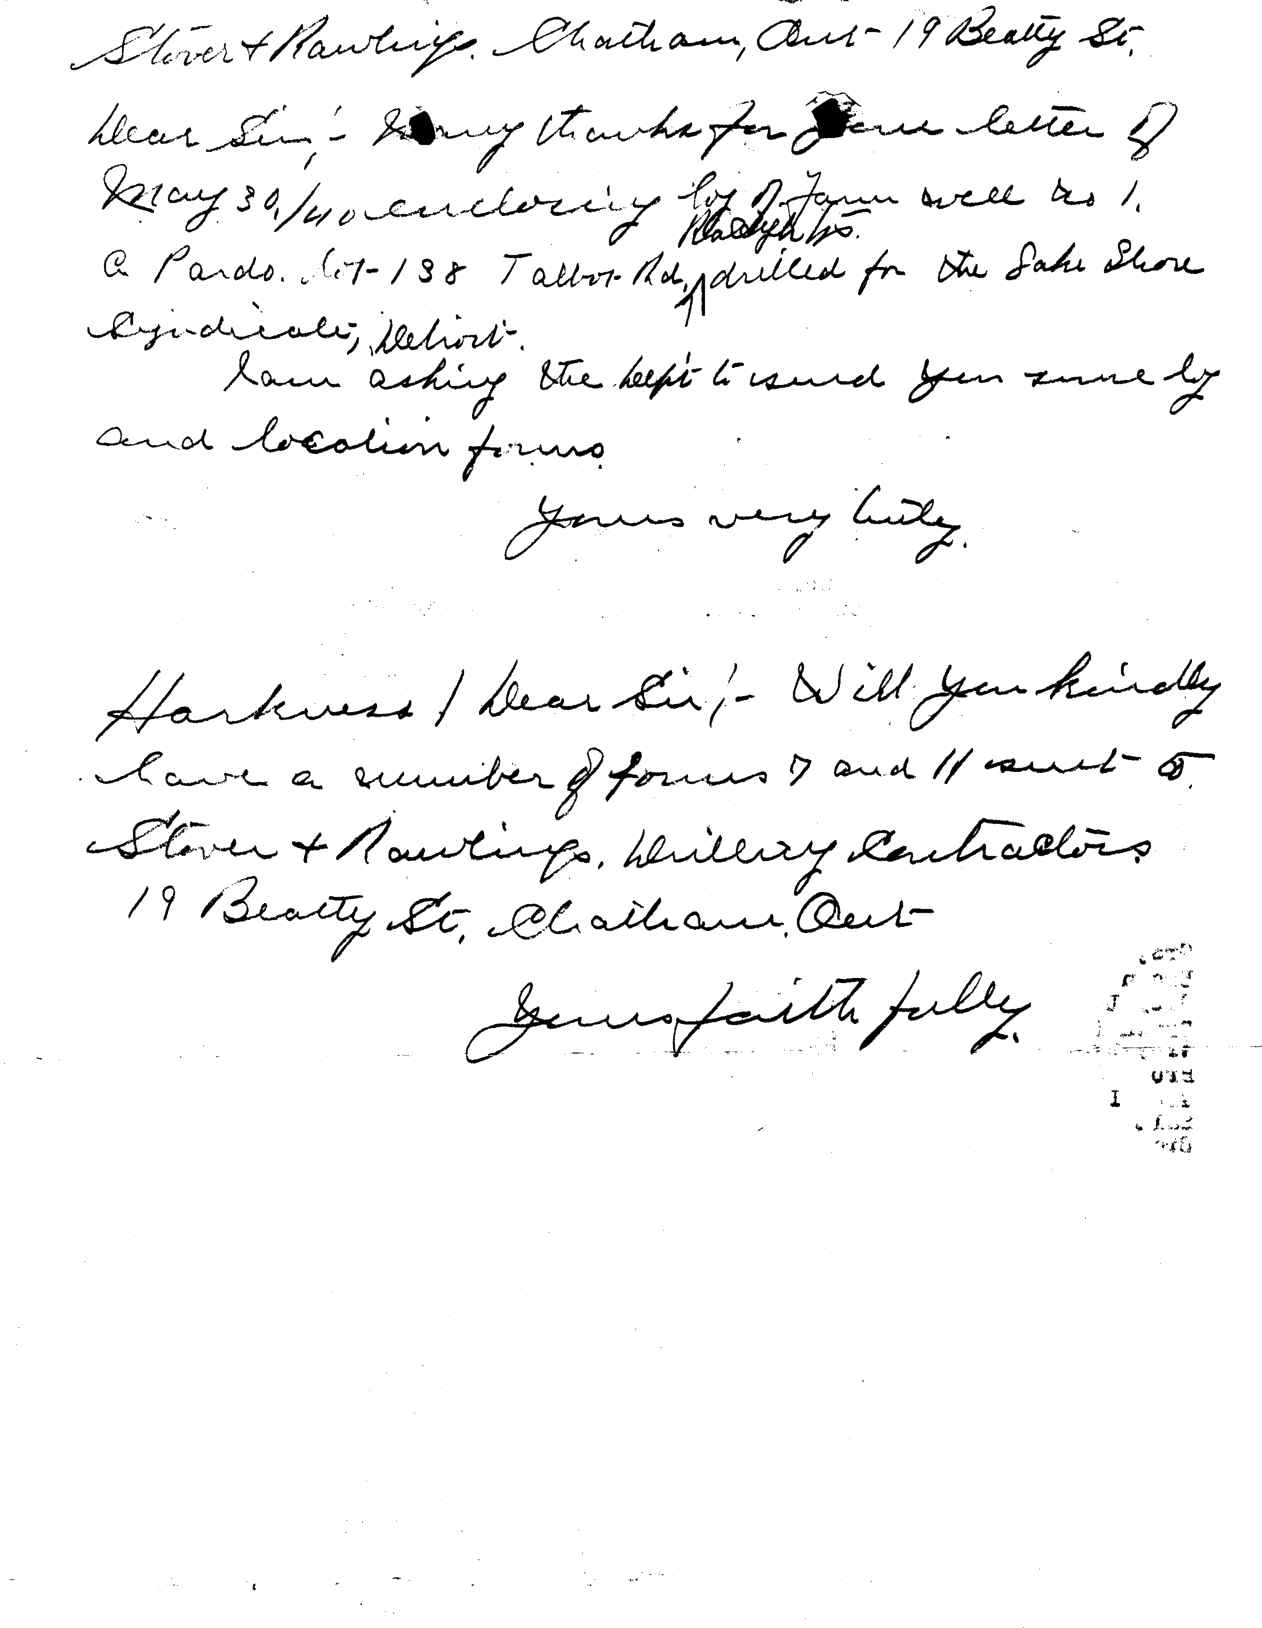 Stover + Rawlings. Chatham, Ont - 19 Beatty St.
Dear Sir;- Many thanks for your letter of
May 30./40 enclosing log of Farm well no 1.
Raleigh
C. Pardo. lot-138 Talbot Rd, drilled for the Lake Shore
Syndicate, Detroit.
I am asking the Dep't to send you some log
and location forms
Yours very truly.
Harkness / Dear Sir;- Will you kindly
have a number of forms 7 and 11 sent to
Stover + Rawlings. Drilling Contractors
19 Beatty St, Chatham, Ont
Yours faithfully.